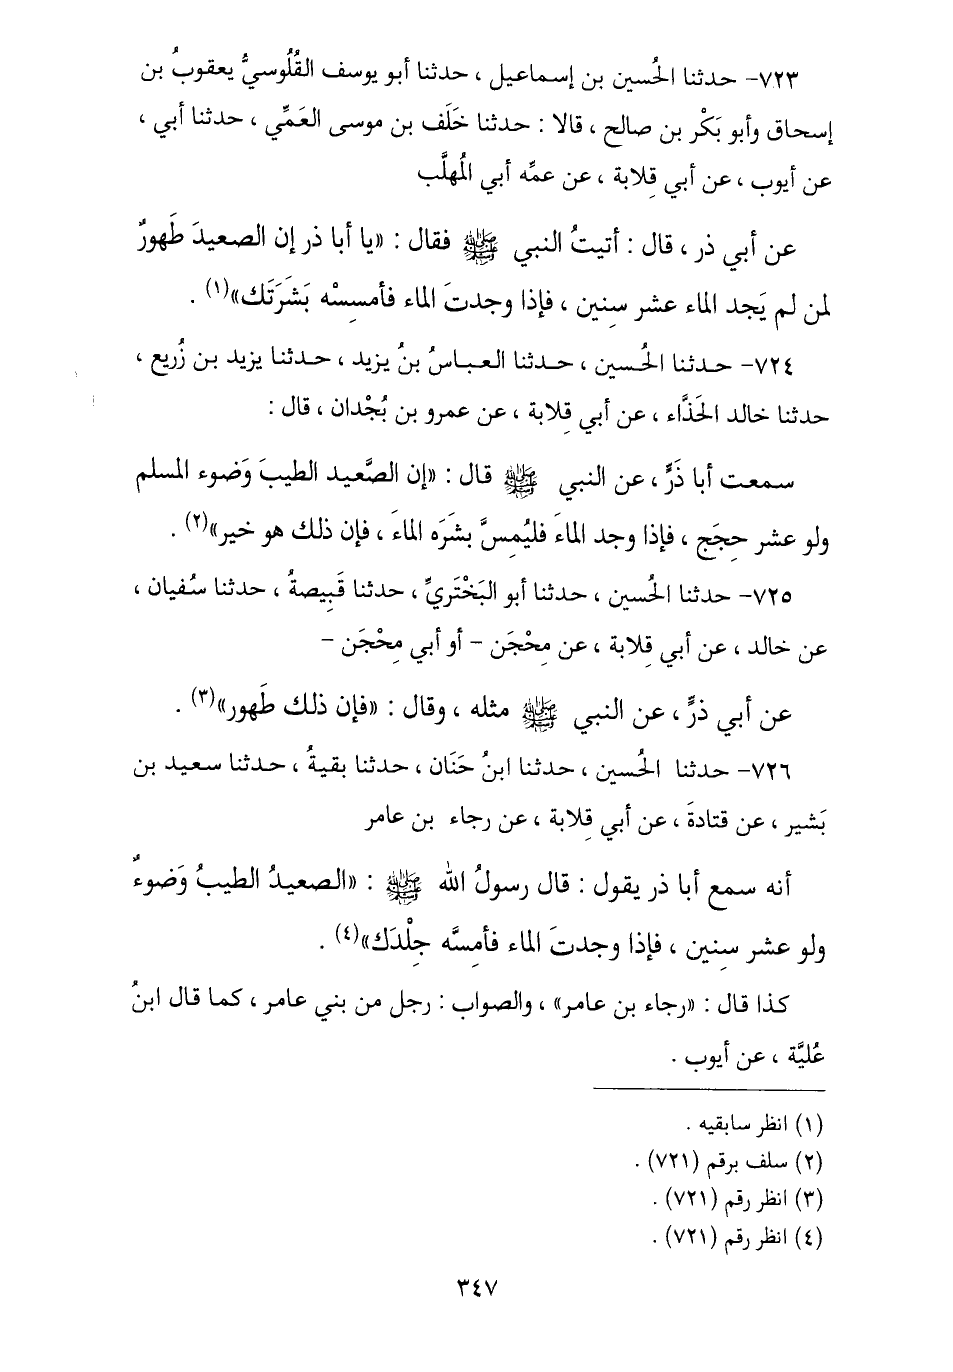 ٧٢٣- حدثنا الحُسين بن إسماعيل ، حدثنا أبو يوسف القُلُوسيُّ يعقوبُ بن
إسحاق وأبو بَكْر بن صالح ، قالا : حدثنا خَلَف بن موسى العَمِّي ، حدثنا أبي ،
عن أيوب ، عن أبي قِلابة ، عن عمِّه أبي المُهلَّب
عن أبي ذر ، قال : أتيتُ النبي ﷺ فقال : «يا أبا ذر إن الصعيدَ طَهورٌ
لمن لم يَجد الماء عشر سنِين ، فإذا وجدتَ الماء فأمسِسْه بَشَرَتَك»(١) .
٧٢٤- حدثنا الحُسين ، حدثنا العباسُ بنُ يزيد ، حدثنا يزيد بن زُريع ،
حدثنا خالد الحَذَّاء ، عن أبي قِلابة ، عن عمرو بن بُجْدان ، قال :
سمعت أبا ذَرٍّ ، عن النبي ﷺ قال : «إن الصَّعيد الطيبَ وَضوء المسلم
ولو عشر حِجَج ، فإذا وجد الماءَ فليُمِسَّ بشَرَه الماءَ ، فإن ذلك هو خير»(٢) .
٧٢٥- حدثنا الحُسين ، حدثنا أبو البَخْتَريِّ ، حدثنا قَبِيصةُ ، حدثنا سُفيان ،
عن خالد ، عن أبي قِلابة ، عن مِحْجَن - أو أبي مِحْجَن -
عن أبي ذرٍّ ، عن النبي ﷺ مثله ، وقال : «فإن ذلك طَهور»(٣) .
٧٢٦- حدثنا الحُسين ، حدثنا ابنُ حَنَان ، حدثنا بقيةُ ، حدثنا سعيد بن
بَشير ، عن قتادةَ ، عن أبي قِلابة ، عن رجاء بن عامر
أنه سمع أبا ذر يقول : قال رسولُ الله ﷺ : «الصعيدُ الطيبُ وَضوءٌ
ولو عشر سنِين ، فإذا وجدتَ الماء فأمِسَّه جِلْدَك»(٤) .
كذا قال : «رجاء بن عامر» ، والصواب : رجل من بني عامر ، كما قال ابنُ
عُليَّة ، عن أيوب .
(١) انظر سابقيه .
(٢) سلف برقم (٧٢١) .
(٣) انظر رقم (٧٢١) .
(٤) انظر رقم (٧٢١) .
٣٤٧